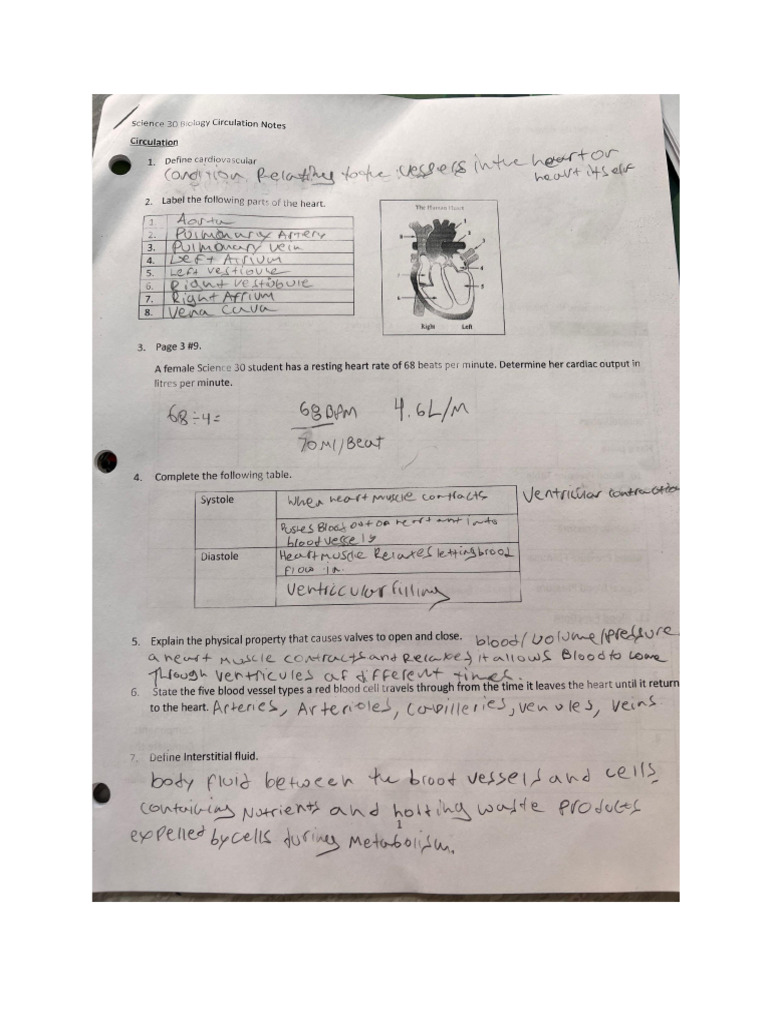 Science 30 Biology Circulation Notes
Circulation
1. Define cardiovascular
Condition Relating to the vessels in the heart or
heart itself
2. Label the following parts of the heart.
The Human Heart
1. Aorta
2. Pulmonary Artery
3. Pulmonary vein
4. Left Atrium
5. Left vestibule
6. Right vestibule
7. Right Atrium
8. Vena Cava
1
2
3
4
5
6
7
8
Right Left
3. Page 3 #9.
A female Science 30 student has a resting heart rate of 68 beats per minute. Determine her cardiac output in
litres per minute.
68÷4= 68BPM 4.6L/M
70Ml/Beat
4. Complete the following table.
Systole When heart muscle contracts Ventricular contraction
Pushes Blood out of heart and into
blood vessels
Diastole Heart muscle Relaxes letting blood
flow in.
Ventricular filling
5. Explain the physical property that causes valves to open and close. blood/volume/pressure
a heart muscle contracts and Relaxes it allows Blood to come
Through ventricules at different times.
6. State the five blood vessel types a red blood cell travels through from the time it leaves the heart until it return
to the heart. Arteries, Arterioles, Capilleries, venules, veins
7. Define Interstitial fluid.
body fluid between the blood vessels and cells,
containing Nutrients and holting waste products
expelled by cells during Metabolism.
1